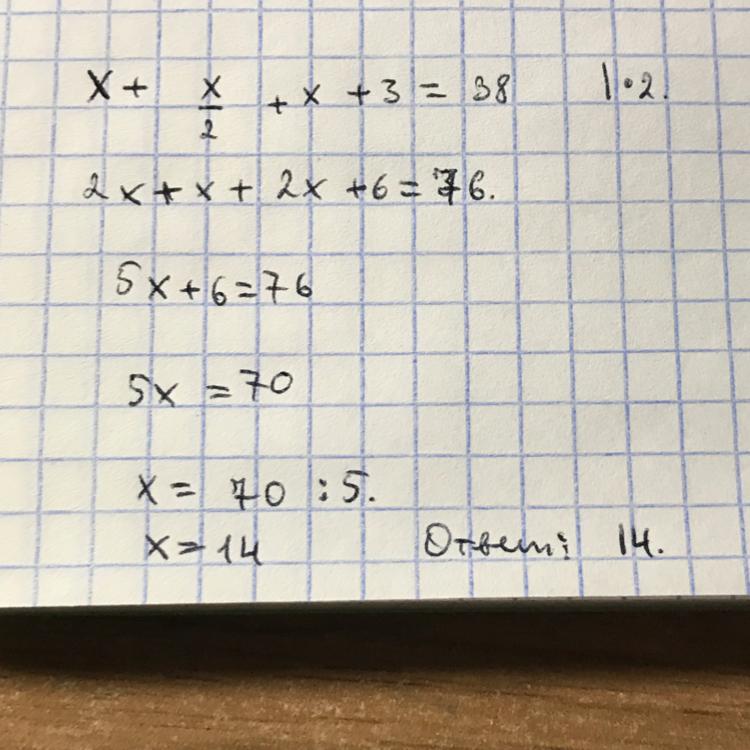 x + x/2 + x + 3 = 38 |·2.
2x + x + 2x + 6 = 76.
5x + 6 = 76
5x = 70
x = 70 : 5.
x = 14 Ответ: 14.